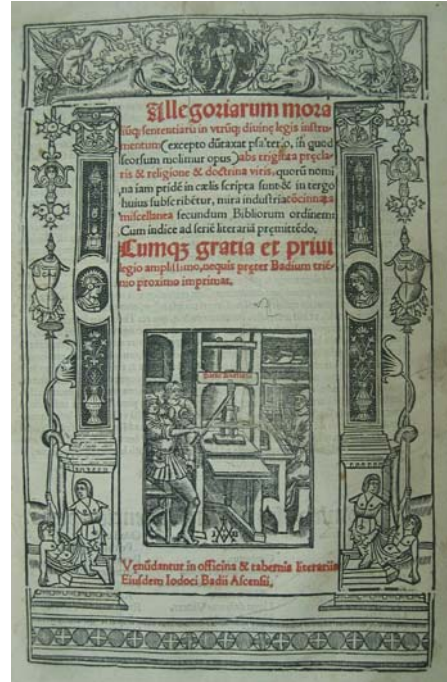 Allegoriarum mora
liũq; sententiarũ in vtrũq; diuinę legis instru-
mentum (excepto dũtaxat psalterio, in quod
seorsum molimur opus) abs triginta pręcla-
ris & religione & doctrina viris, quorũ nomi
na iam pridẽ in cælis scripta sunt & in tergo
huius subscribẽtur, mira industria cõcinnata
miscellanea secundum Bibliorum ordinem:
Cum indice ad seriẽ literariã pręmittẽdo.
Cumq; gratia et priui
legio amplissimo, nequis pręter Badium triẽ-
nio proximo imprimat.
Venũdantur in officina & tabernis literariis
Eiusdem Iodoci Badii Ascensii.